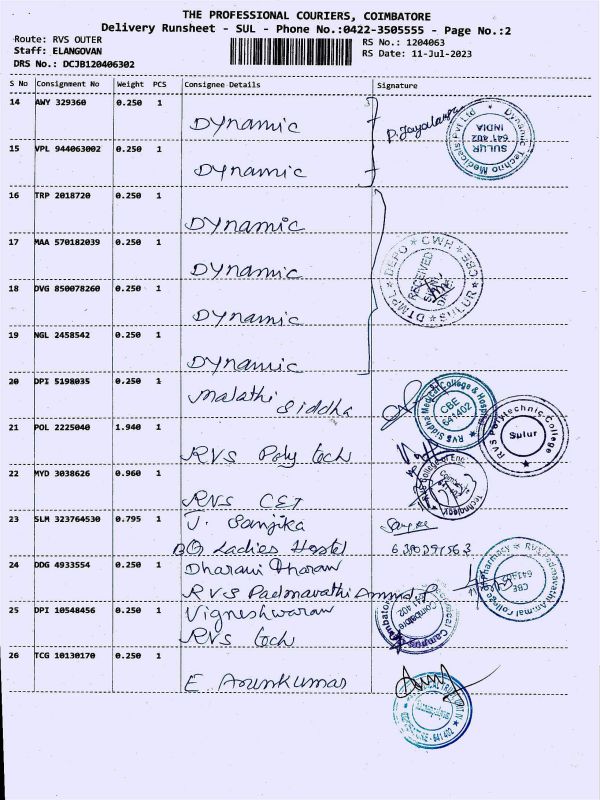 THE PROFESSIONAL COURIERS, COIMBATORE
Delivery Runsheet - SUL - Phone No.:0422-3505555 - Page No.:2
Route: RVS OUTER
Staff: ELANGOVAN
DRS No.: DCJB120406302
RS No.: 1204063
RS Date: 11-Jul-2023
S No Consignment No Weight PCS Consignee Details Signature
14 AWY 329360 0.250 1 Dynamic
15 VPL 944063002 0.250 1 Dynamic
Dynamic Techno Medicals Pvt Ltd
SULUR
641 402
INDIA
16 TRP 2018720 0.250 1 Dynamic
17 MAA 570182039 0.250 1 Dynamic
18 DVG 850078260 0.250 1 Dynamic
DTMPL DEPO CWH CBE SULUR
RECEIVED
19 NGL 2458542 0.250 1 Dynamic
20 DPI 5198035 0.250 1 Malathi
Siddha
RVS Siddha Medical College &
CBE
641402
21 POL 2225040 1.940 1 RVS Poly tech
RVS Polytechnic College
Sulur
22 MYD 3038626 0.960 1 RVS CET
23 SLM 323764530 0.795 1 J. Sangika
BQ Ladies Hostel
24 DDG 4933554 0.250 1 Dharani Dharan
RVS Padmavathi Ammal P
CBE
25 DPI 10548456 0.250 1 Vigneshwaran
RVS tech
26 TCG 10130170 0.250 1 E Arunkumar